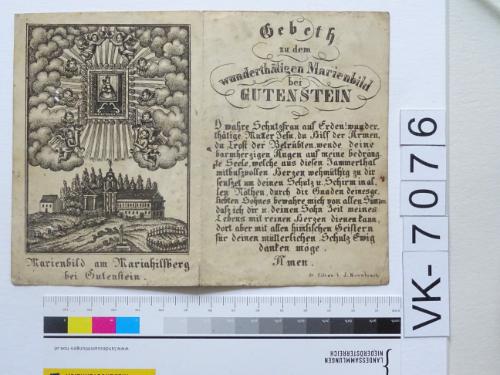 Marienbild am Mariahilfberg
bei Gutenstein.
Gebeth
zu dem
wunderthätigen Marienbild
bei
GUTENSTEIN
O wahre Schutzfrau auf Erden, wunder
thätige Mutter Jesu, du Hilf der Armen,
du Trost der Betrübten, wende deine
barmherzigen Augen auf meine bedräng
te Seele, welche aus diesen Jammerthal
mitbußvollen Herzen wehmüthig zu dir
seufzet um deinen Schutz u. Schirm in al
len Nöthen, durch die Gnaden deines ge
liebten Sohnes bewahre mich von allen Sünden
daß ich dir u. deinen Sohn Zeit meines
Lebens mit reinen Herzen dienen kann,
dort aber mit allen himlischen Geistern
für deinen mütterlichen Schutz Ewig
danken möge.
Amen.
VK-7076
www.landessammlungen-noe.at
LANDESSAMMLUNGEN
NIEDERÖSTERREICH